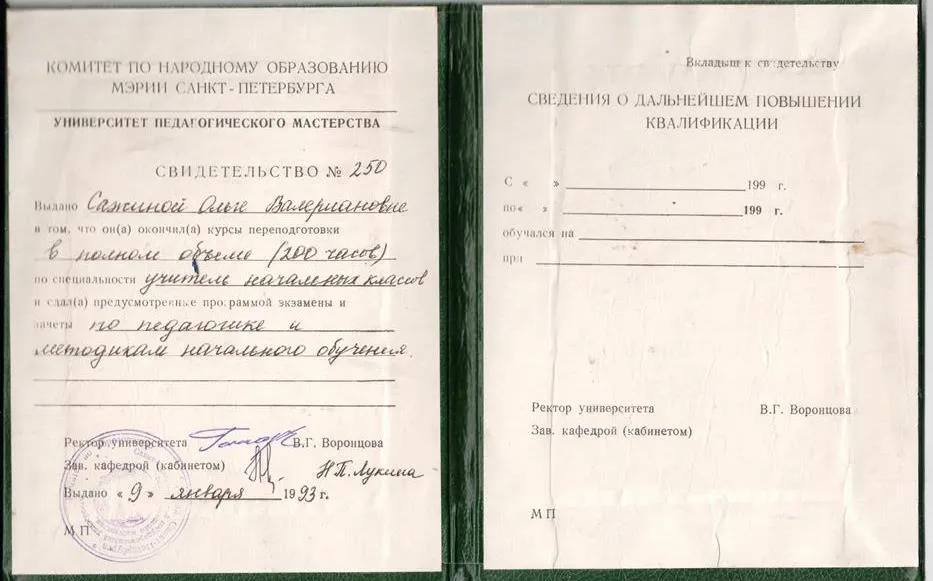 КОМИТЕТ ПО НАРОДНОМУ ОБРАЗОВАНИЮ
МЭРИИ САНКТ-ПЕТЕРБУРГА
УНИВЕРСИТЕТ ПЕДАГОГИЧЕСКОГО МАСТЕРСТВА
СВИДЕТЕЛЬСТВО № 250
Выдано Сажиной Ольге Валериановне
в том, что он(а) окончил(а) курсы переподготовки
в полном объеме (200 часов)
по специальности учитель начальных классов
и сдал(а) предусмотренные программой экзамены и
зачеты по педагогике и
методикам начального обучения.
Ректор университета В.Г. Воронцова
Зав. кафедрой (кабинетом) Н.П. Лукина
Выдано «9» января 1993 г.
МП
Вкладыш к свидетельству
СВЕДЕНИЯ О ДАЛЬНЕЙШЕМ ПОВЫШЕНИИ
КВАЛИФИКАЦИИ
С « » 199 г.
по « » 199 г.
обучался на
при
Ректор университета В.Г. Воронцова
Зав. кафедрой (кабинетом)
МП